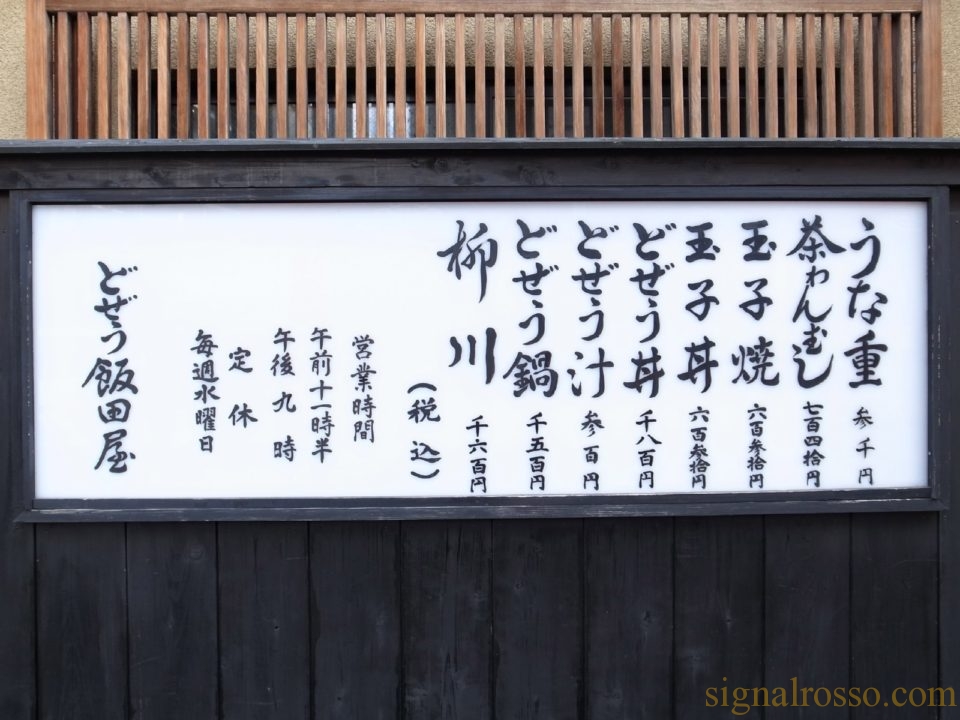 うな重 参千円
茶わんむし 七百四拾円
玉子焼 六百参拾円
玉子丼 六百参拾円
どぜう丼 千八百円
どぜう汁 参百円
どぜう鍋 千五百円
柳川 千六百円
(税込)
営業時間
午前十一時半
午後九時
定休
毎週水曜日
どぜう飯田屋
signalrosso.com